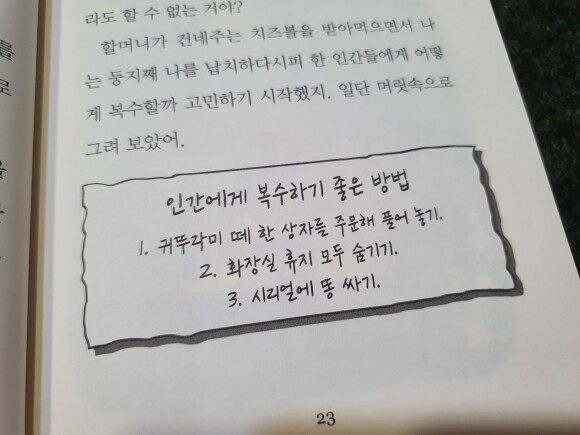 라도 할 수 없는 거야?
할머니가 건네주는 치즈볼을 받아먹으면서 나
는 둥지째 나를 납치하다시피 한 인간들에게 어떻
게 복수할까 고민하기 시작했지. 일단 머릿속으로
그려 보았어.
인간에게 복수하기 좋은 방법
1. 귀뚜라미 떼 한 상자를 주문해 풀어 놓기.
2. 화장실 휴지 모두 숨기기.
3. 시리얼에 똥 싸기.
23
를
로
을